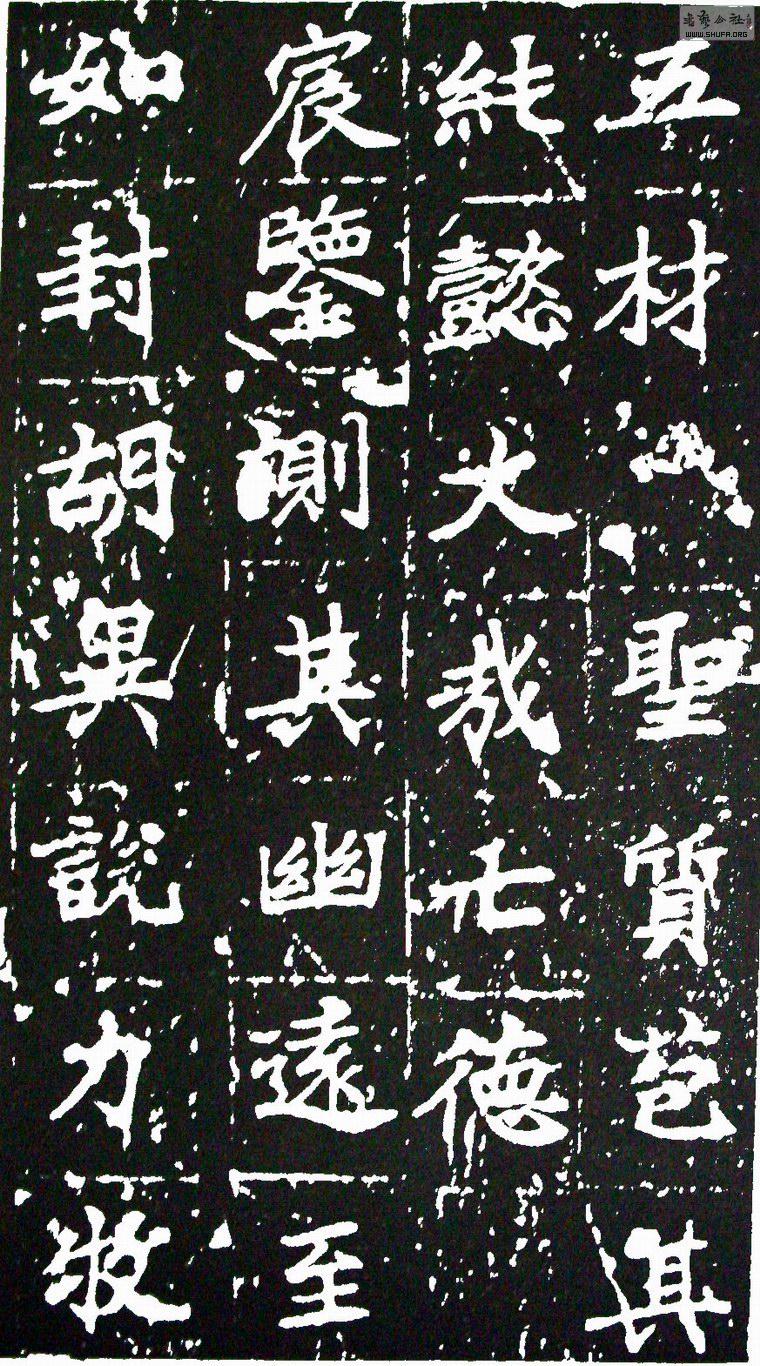 書藝公社
WWW.SHUFA.ORG
五材聖質苞其
純懿大哉德
宸鑒測其幽遠至
如封胡異說力牧